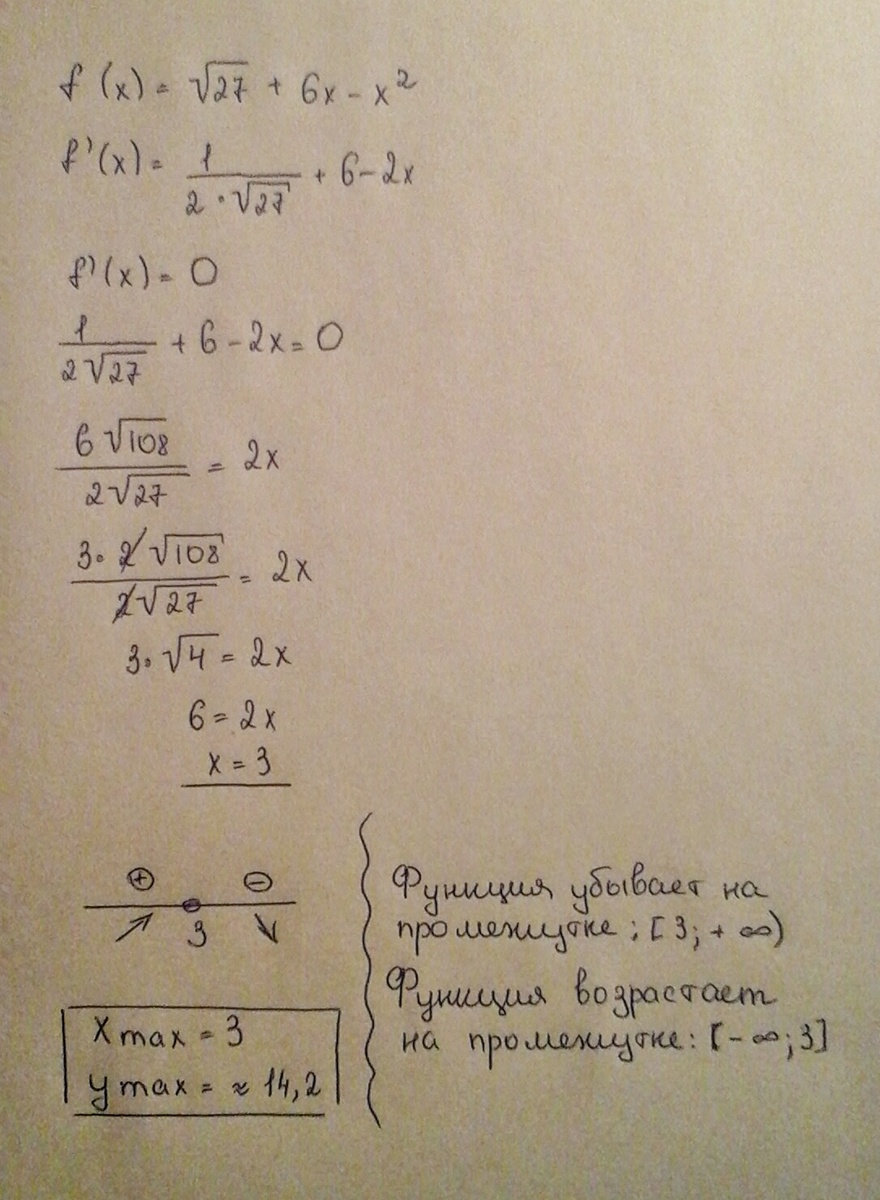 f (x) = √27 + 6x - x²
f'(x) = 1/(2 · √27) + 6 - 2x
f'(x) = 0
1/(2√27) + 6 - 2x = 0
6√108/(2√27) = 2x
3 · 2√108/(2√27) = 2x
3 · √4 = 2x
6 = 2x
x = 3
+ -
3
x max = 3
y max = ≈ 14,2
Функция убывает на
промежутке: [3; + ∞)
Функция возрастает
на промежутке: [- ∞; 3]